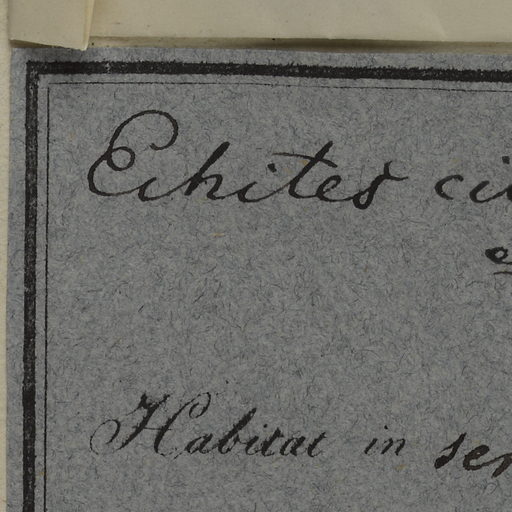 Echites
Habitat in